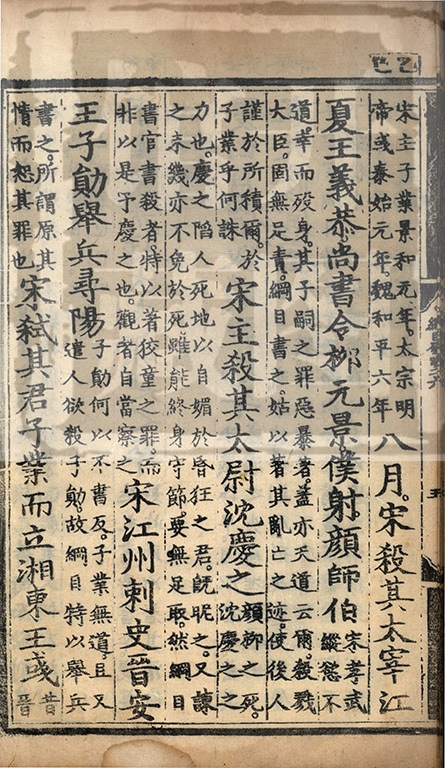 乙巳
宋主子業景和元年。太宗明
帝彧泰始元年。魏和平六年
八月。宋殺其太宰江
夏王義恭尚書令柳元景。僕射顔師伯
宋孝武
縱慾不
道華而歿身。其子嗣之罪惡暴著。蓋亦天道云爾。殺戮
大臣。固無足責。綱目書之。姑以著其亂亡之迹。使後人
謹於所積爾。於
子業乎何誅
宋主殺其太尉沈慶之
顔柳之死。
沈慶之之
力也。慶之陷人死地以自媚於昏狂之君。旣昵之。又諫
之未幾亦不免於死。雖能終身守節。要無足取。然綱目
書官書殺者。特以著狡童之罪。而
非以是予慶之也。觀者自當察之
宋江州刺史晉安
王子勛舉兵尋陽
子勛何以不書反。子業無道。且又
遣人欲殺子勛。故綱目特以舉兵
書之。所謂原其
情而恕其罪也
宋弑其君子業而立湘東王彧
昔
晉